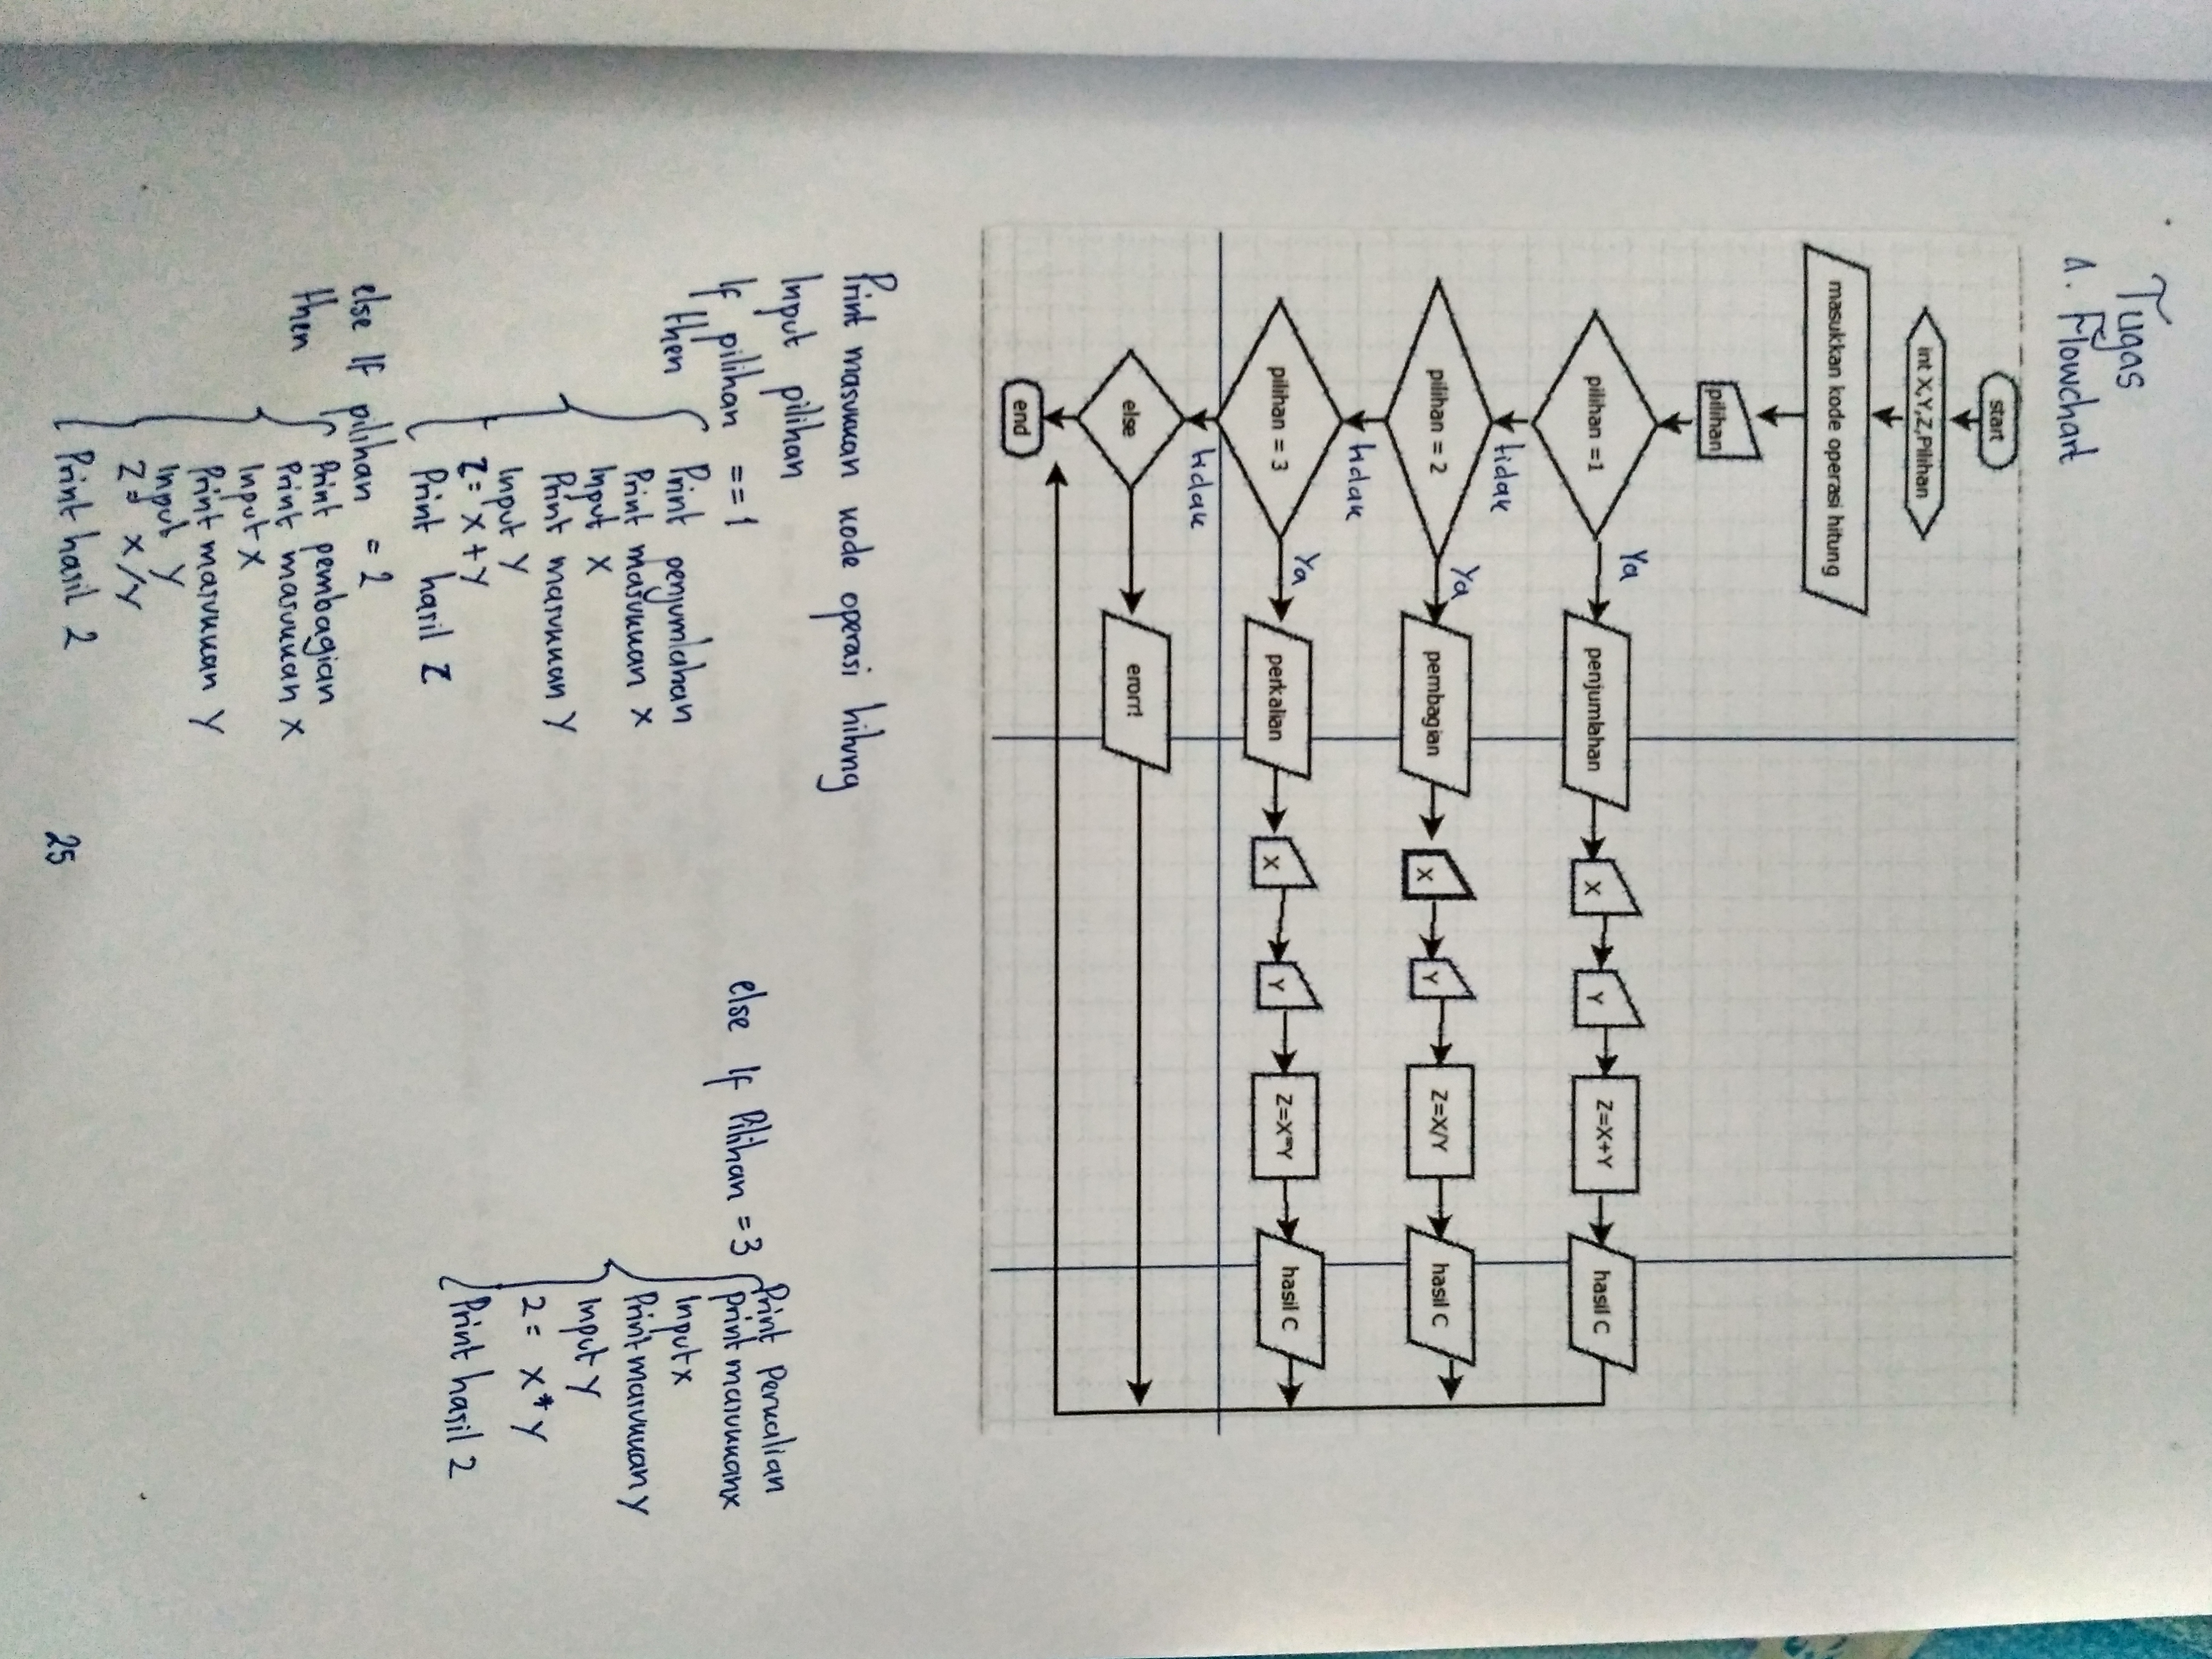 Tugas
1. Flowchart
start
int X,Y,Z,Pilihan
masukkan kode operasi hitung
pilihan
pilihan =1
Ya
penjumlahan
X
Y
Z=X+Y
hasil C
tidak
pilihan = 2
Ya
pembagian
X
Y
Z=X/Y
hasil C
tidak
pilihan = 3
Ya
perkalian
X
Y
Z=X*Y
hasil C
tidak
else
erorr!
end
Print masukkan kode operasi hitung
Input pilihan
If pilihan == 1
then
Print penjumlahan
Print masukkan X
Input X
Print masukkan Y
Input Y
Z = X + Y
Print hasil Z
else If pilihan = 2
then
Print pembagian
Print masukkan X
Input X
Print masukkan Y
Input Y
Z = X/Y
Print hasil 2
else If Pilihan = 3
Print perkalian
Print masukkan x
Input x
Print masukkan y
Input y
2 = X * Y
Print hasil 2
25